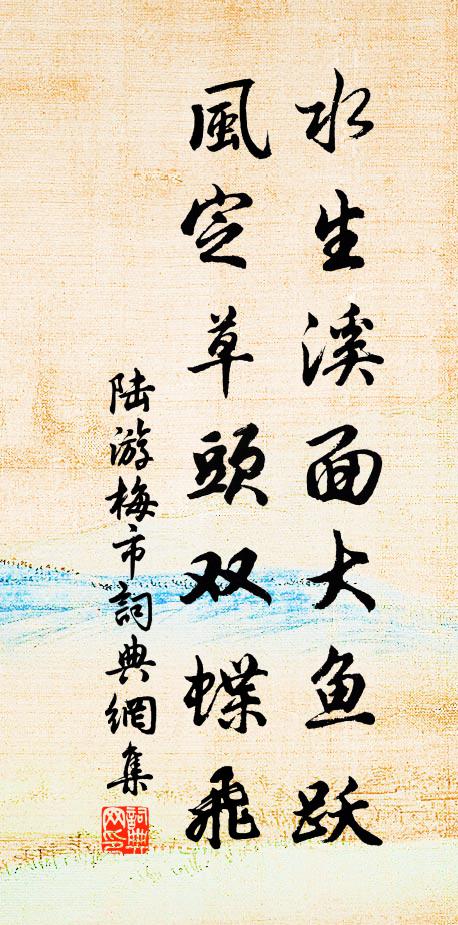 水生溪面大鱼跃
風定草頭双蝶飛
陆游梅市詞典網集
詞典网印